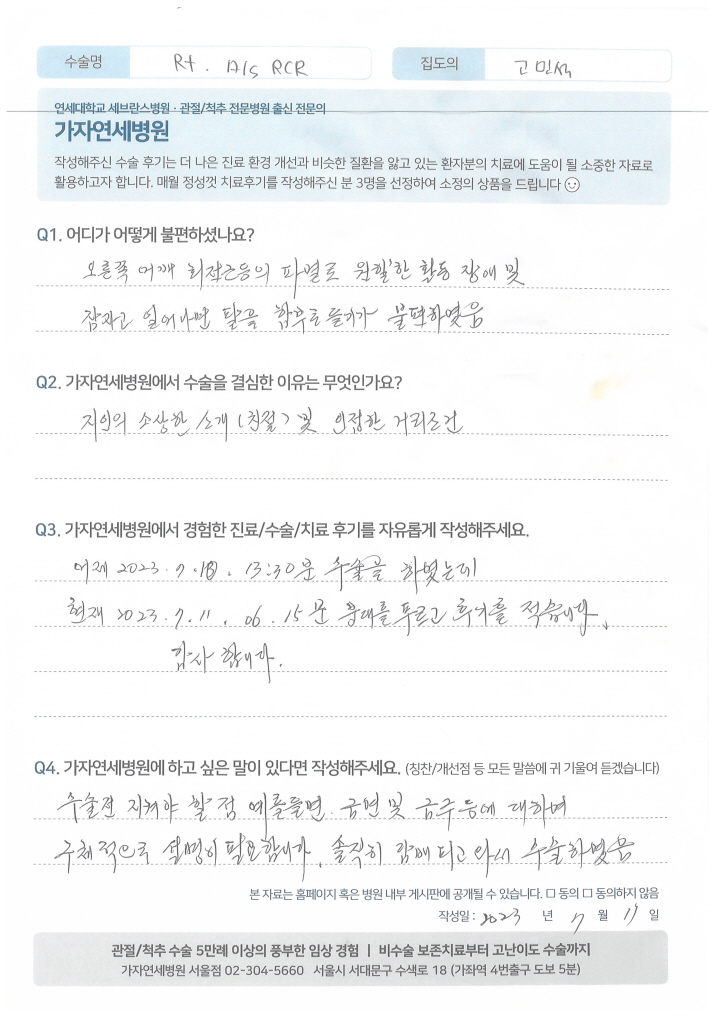 수술명 Rt. A/S RCR 집도의 고민석
연세대학교 세브란스병원 · 관절/척추 전문병원 출신 전문의
가자연세병원
작성해주신 수술 후기는 더 나은 진료 환경 개선과 비슷한 질환을 앓고 있는 환자분의 치료에 도움이 될 소중한 자료로
활용하고자 합니다. 매월 정성껏 치료후기를 작성해주신 분 3명을 선정하여 소정의 상품을 드립니다
Q1. 어디가 어떻게 불편하셨나요?
오른쪽 어깨 회전근등의 파열로 원활한 활동 장애 및
잠자고 일어나면 팔굽 들기가 불편하였음
Q2. 가자연세병원에서 수술을 결심한 이유는 무엇인가요?
지인의 소상한 소개 (친절) 및 인접한 거리조건
Q3. 가자연세병원에서 경험한 진료/수술/치료 후기를 자유롭게 작성해주세요.
어제 2023. 7. 13:30분 수술을 하였는데
현재 2023. 7. 11. 06. 15분 붕대를 푸르고 후기를 적습니다.
감사 합니다.
Q4. 가자연세병원에 하고 싶은 말이 있다면 작성해주세요. (칭찬/개선점 등 모든 말씀에 귀 기울여 듣겠습니다)
수술전 지켜야 할 점 예를들면 금연 및 금주 등에 대하여
구체적으로 설명이 필요합니다. 솔직히 와서 수술하였음
본 자료는 홈페이지 혹은 병원 내부 게시판에 공개될 수 있습니다. □ 동의 □ 동의하지 않음
작성일 : 2023 년 7 월 11 일
관절/척추 수술 5만례 이상의 풍부한 임상 경험 | 비수술 보존치료부터 고난이도 수술까지
가자연세병원 서울점 02-304-5660 서울시 서대문구 수색로 18 (가좌역 4번출구 도보 5분)